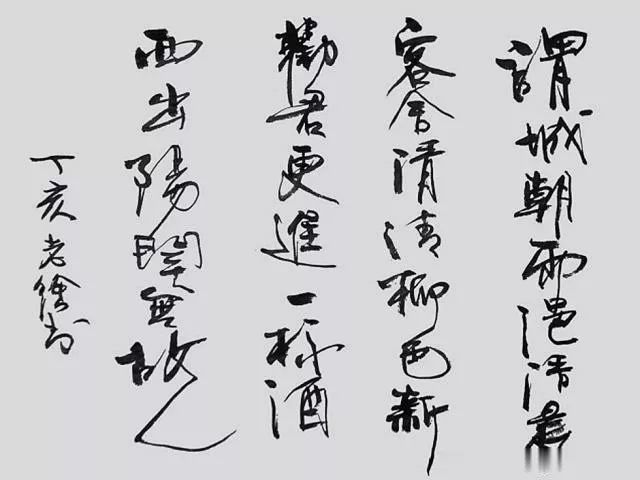 謂城朝雨浥清塵
客舍清清柳色新
勸君更進一杯酒
西出陽關無故人
丁亥老徐书